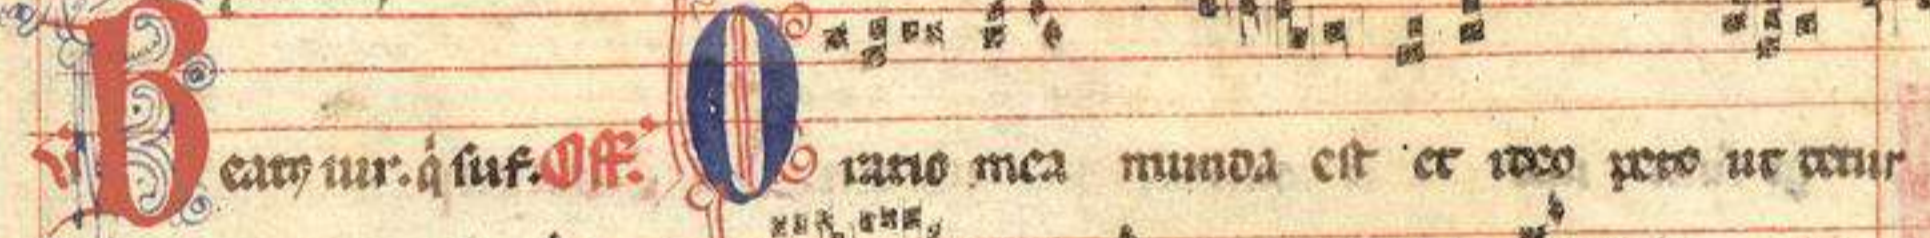 ℣ Beatꝰ uir. q̇ suf. Off. Oratio mea munda est et ideo peto ut detur